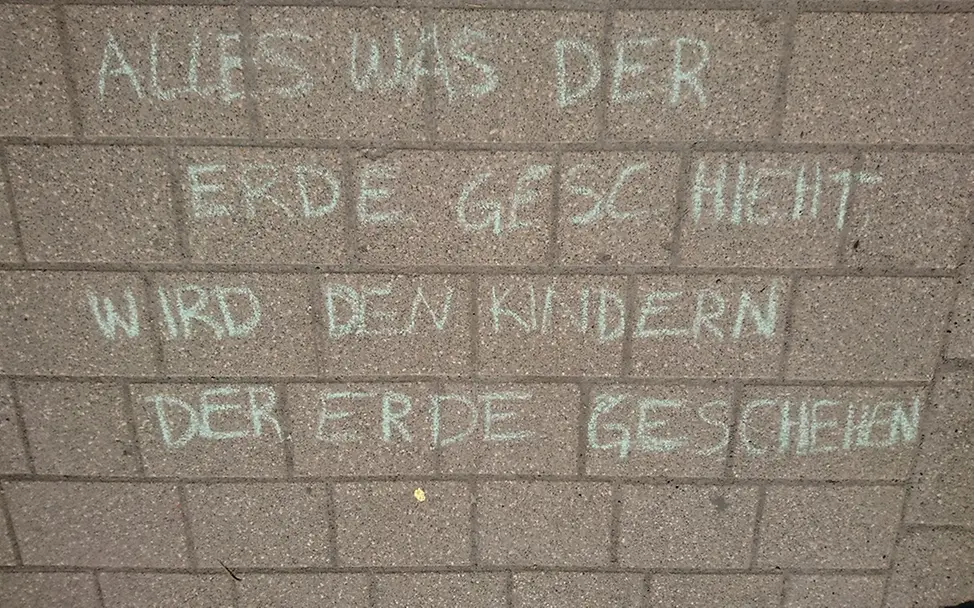 ALLES WAS DER
ERDE GESCHIEHT,
WIRD DEN KINDERN
DER ERDE GESCHEHEN